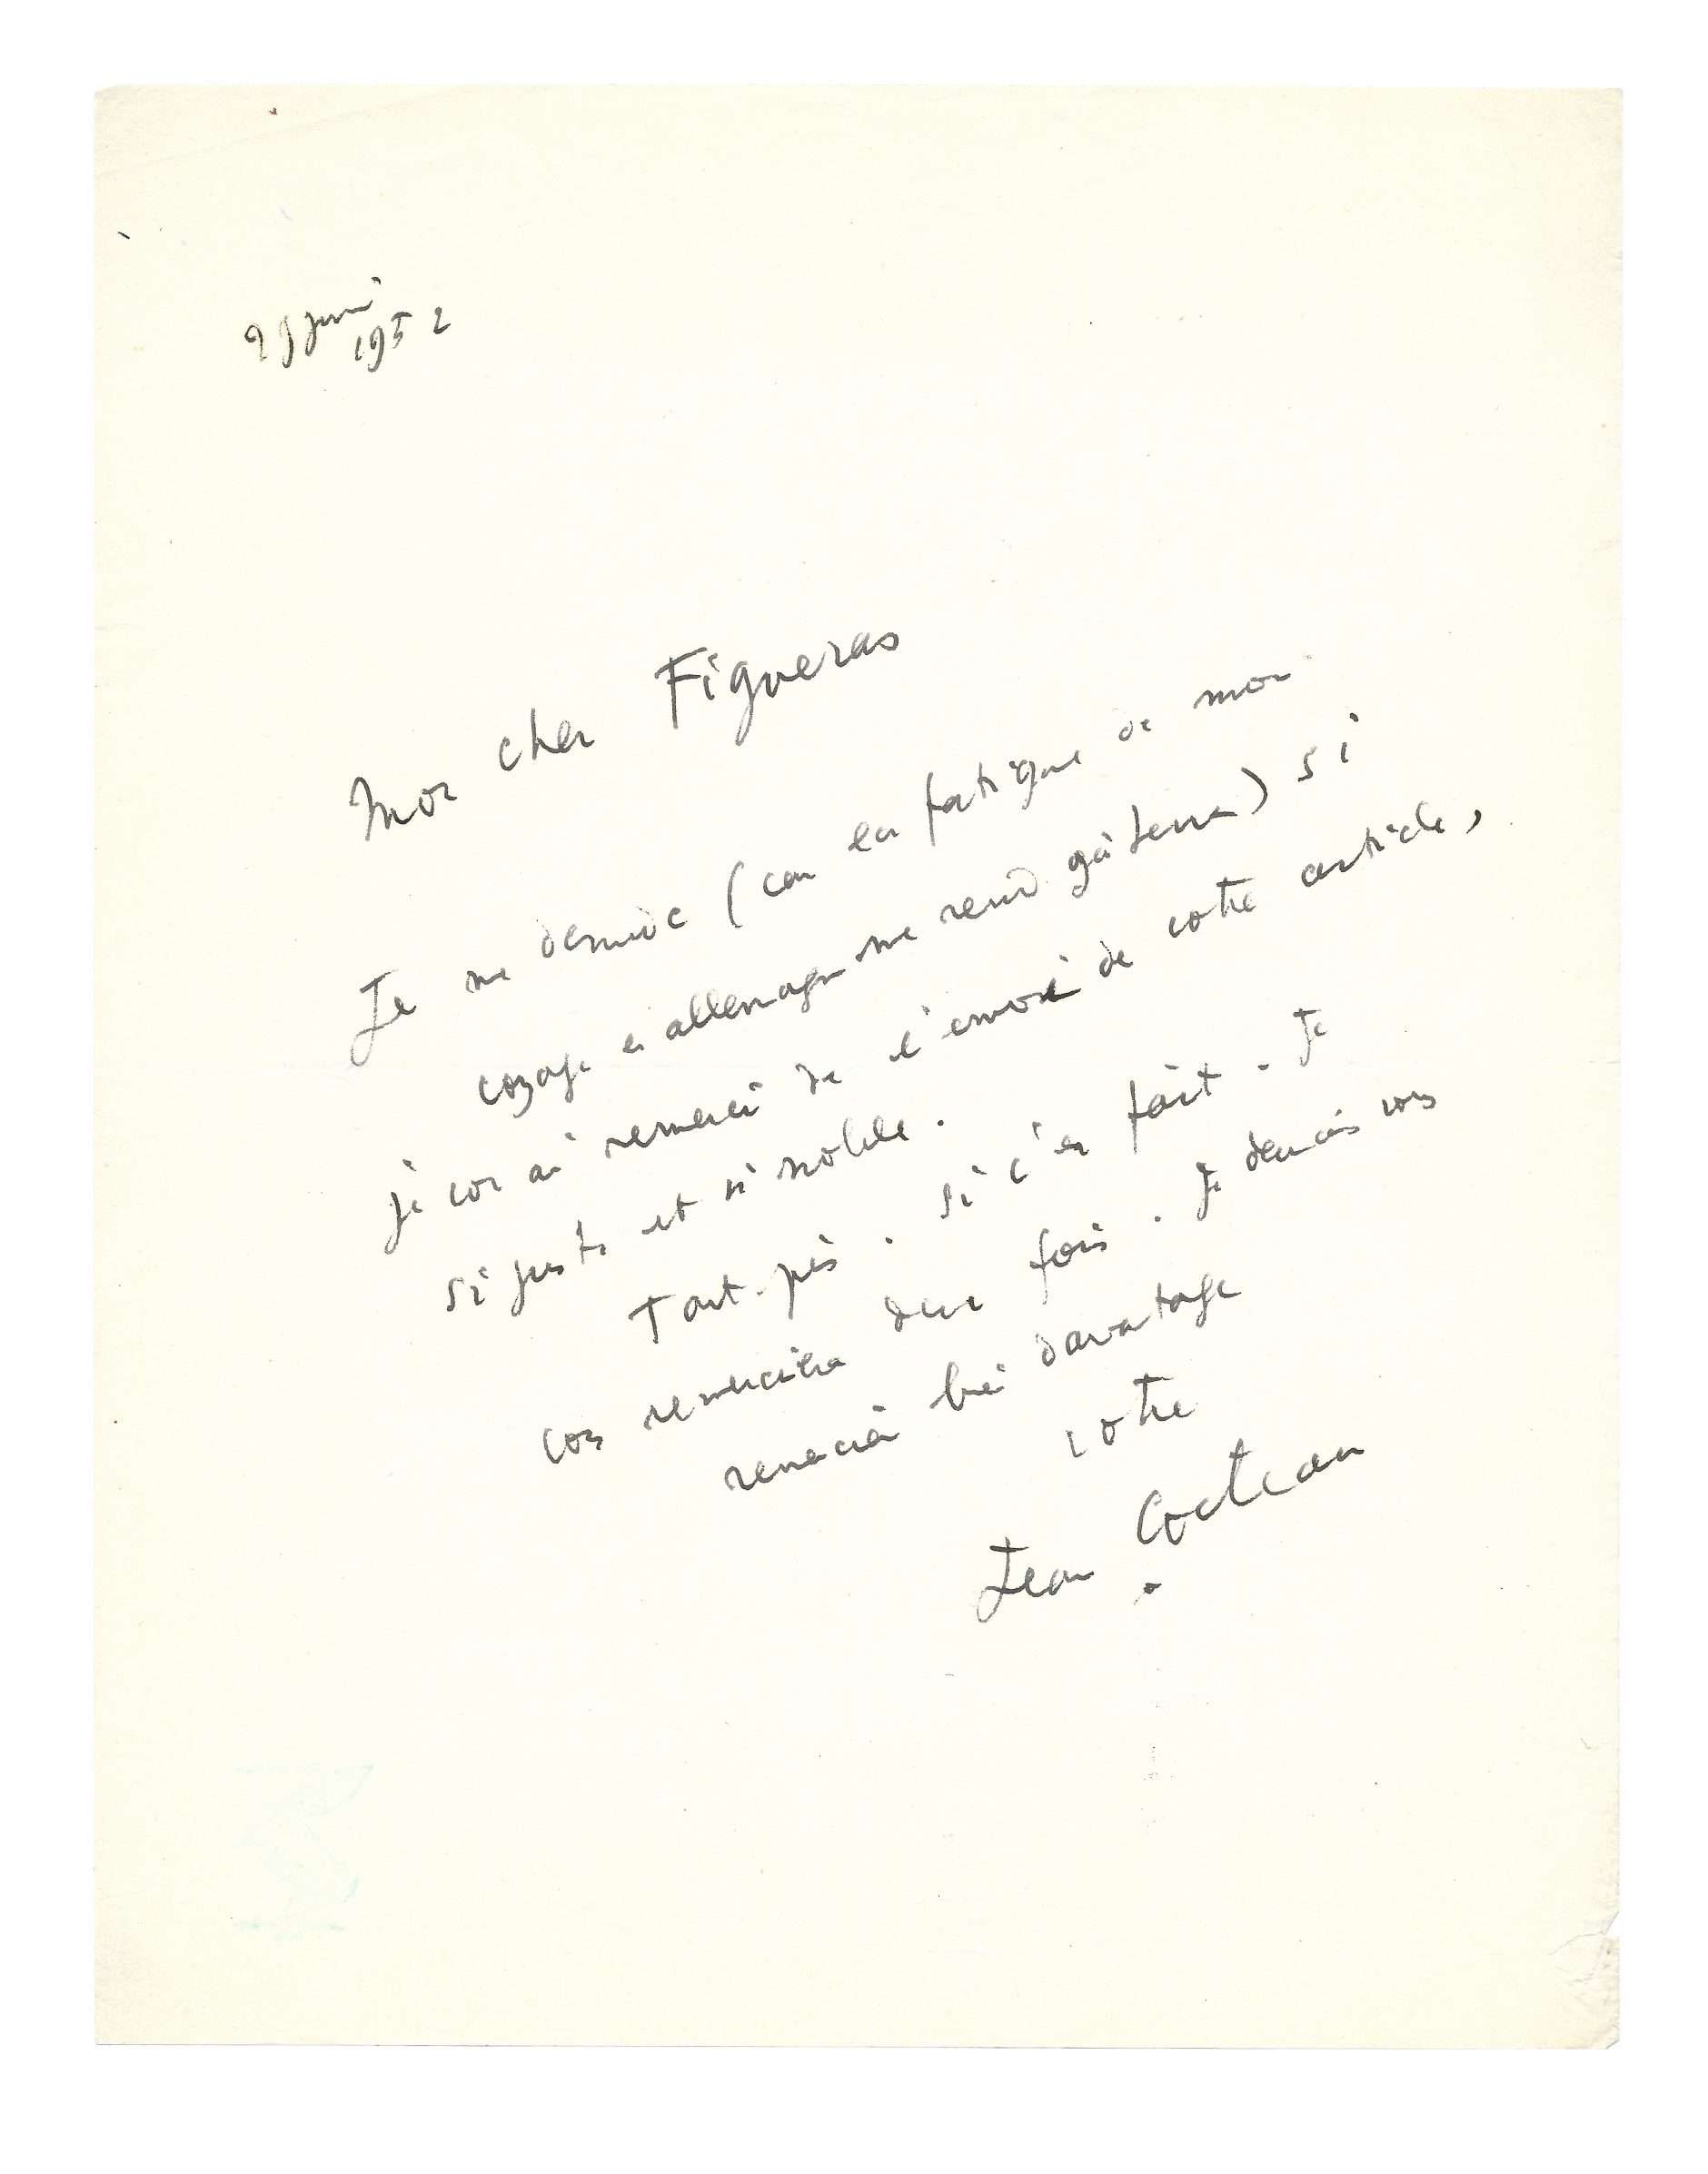 29 juin
1952
Mon cher Figueras
Je me demande (car la fatigue de mon
voyage en allemagne me rend gâteux) si
je vous ai remercié de l'envoi de votre article,
si juste et si noble.
Tant-pis. si c'est fait. Je
vous remercierai deux fois. Je devrais vous
remercier bien davantage
votre
Jean Cocteau